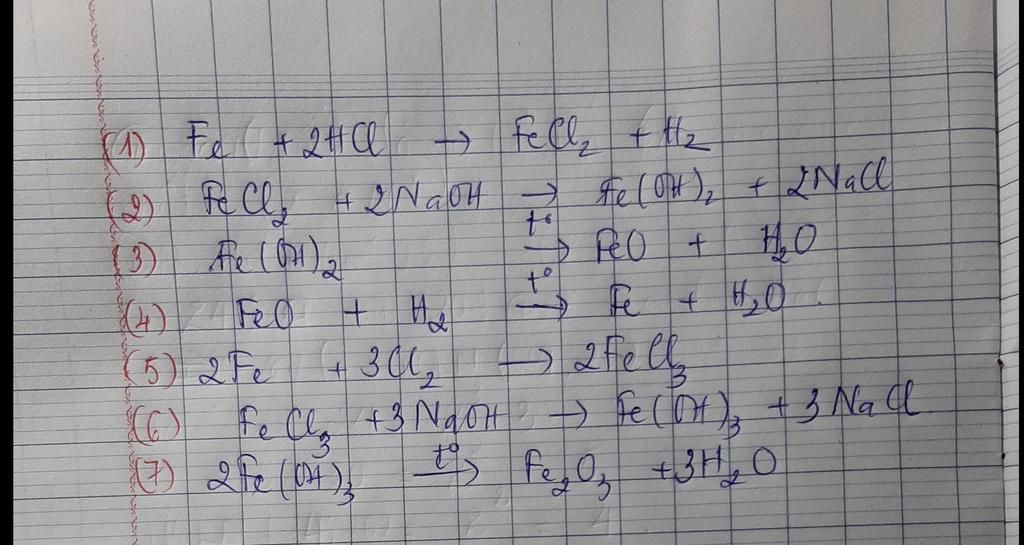 (1) Fe + 2HCl → FeCl₂ + H₂
(2) FeCl₂ + 2NaOH → Fe(OH)₂ + 2NaCl
(3) Fe(OH)₂ t° → FeO + H₂O
(4) FeO + H₂ t° → Fe + H₂O
(5) 2Fe + 3Cl₂ → 2FeCl₃
(6) FeCl₃ + 3NaOH → Fe(OH)₃ + 3NaCl
(7) 2Fe(OH)₃ t° → Fe₂O₃ + 3H₂O